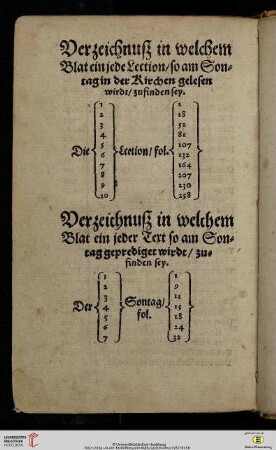 Verzeichnuß in welchem
Blat ein jede Lection/ so am Son-
tag in der Kirchen gelesen
wirdt/ zu finden sey.
Die 1 2 3 4 5 6 7 8 9 10 Lection/ fol. 1 18 52 81 107 132 164 207 230 258
Verzeichnuß in welchem
Blat ein jeder Text so am Son-
tag geprediget wirdt/ zu-
finden sey.
Der 1 2 3 4 5 6 7 Sontag/ fol. 1 9 11 15 18 24 32
UNIVERSITÄTS-
BIBLIOTHEK
HEIDELBERG
© Universitätsbibliothek Heidelberg